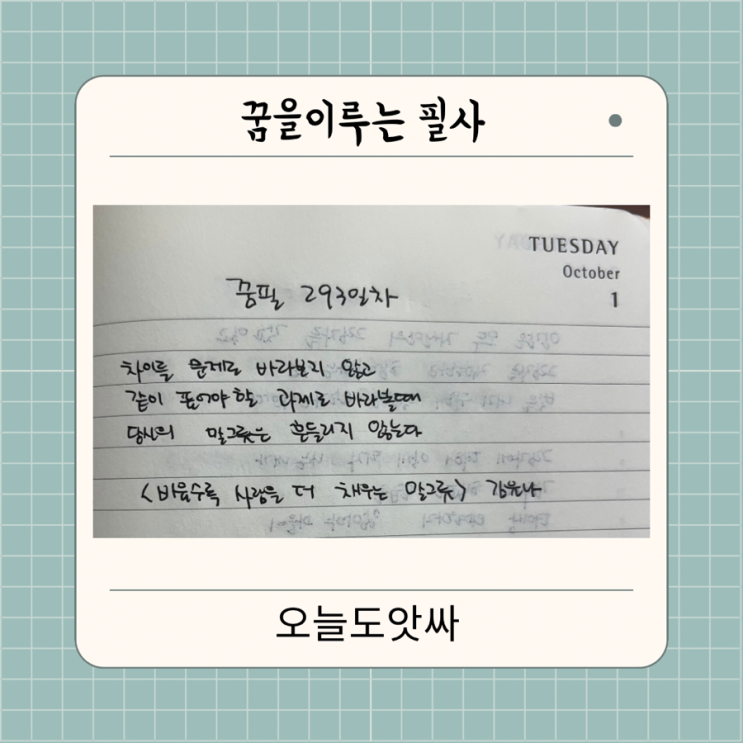 꿈을이루는 필사
TUESDAY
October
1
꿈필 293일차
차이를 문제로 바라보지 않고
같이 풀어야 할 과제로 바라볼때
당신의 말그릇은 흔들리지 않는다
<비울수록 사람을 더 채우는 말그릇> 김윤나
오늘도앗싸